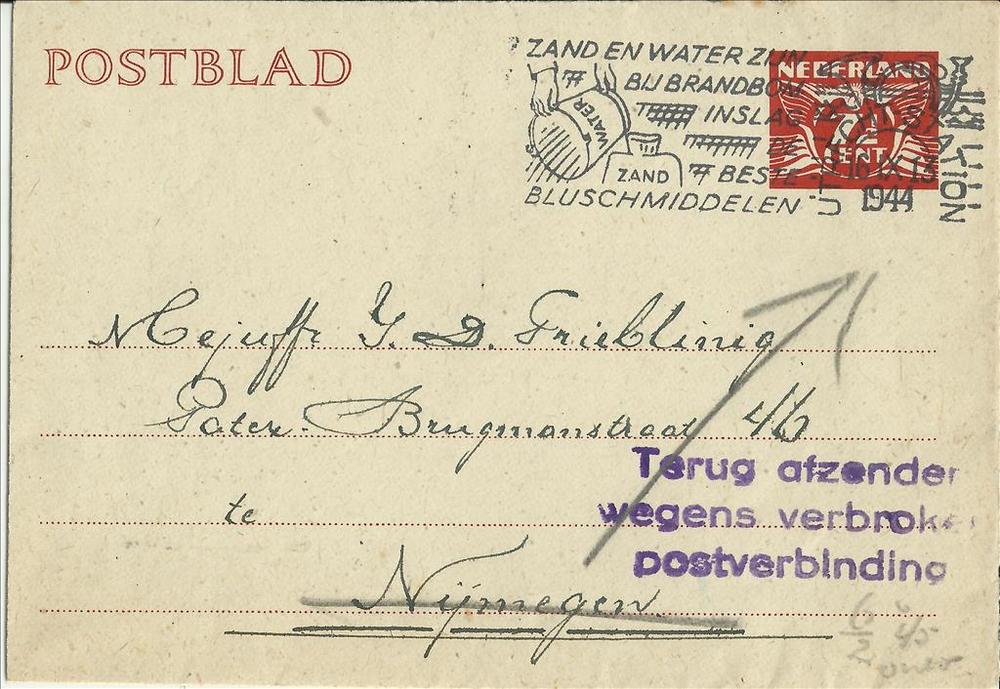 POSTBLAD
ZAND EN WATER ZIJN
BIJ BRANDBOM
INSLAG
DE
BESTE
BLUSCHMIDDELEN
WATER
ZAND
NEDERLAND
7½
CENT
UTRECHT STATION
16 IX 13
1944
Mejuffr Y. D. Frieblinig
Pater. Brugmanstraat 46
te
Nijmegen
Terug afzender
wegens verbroke
postverbinding